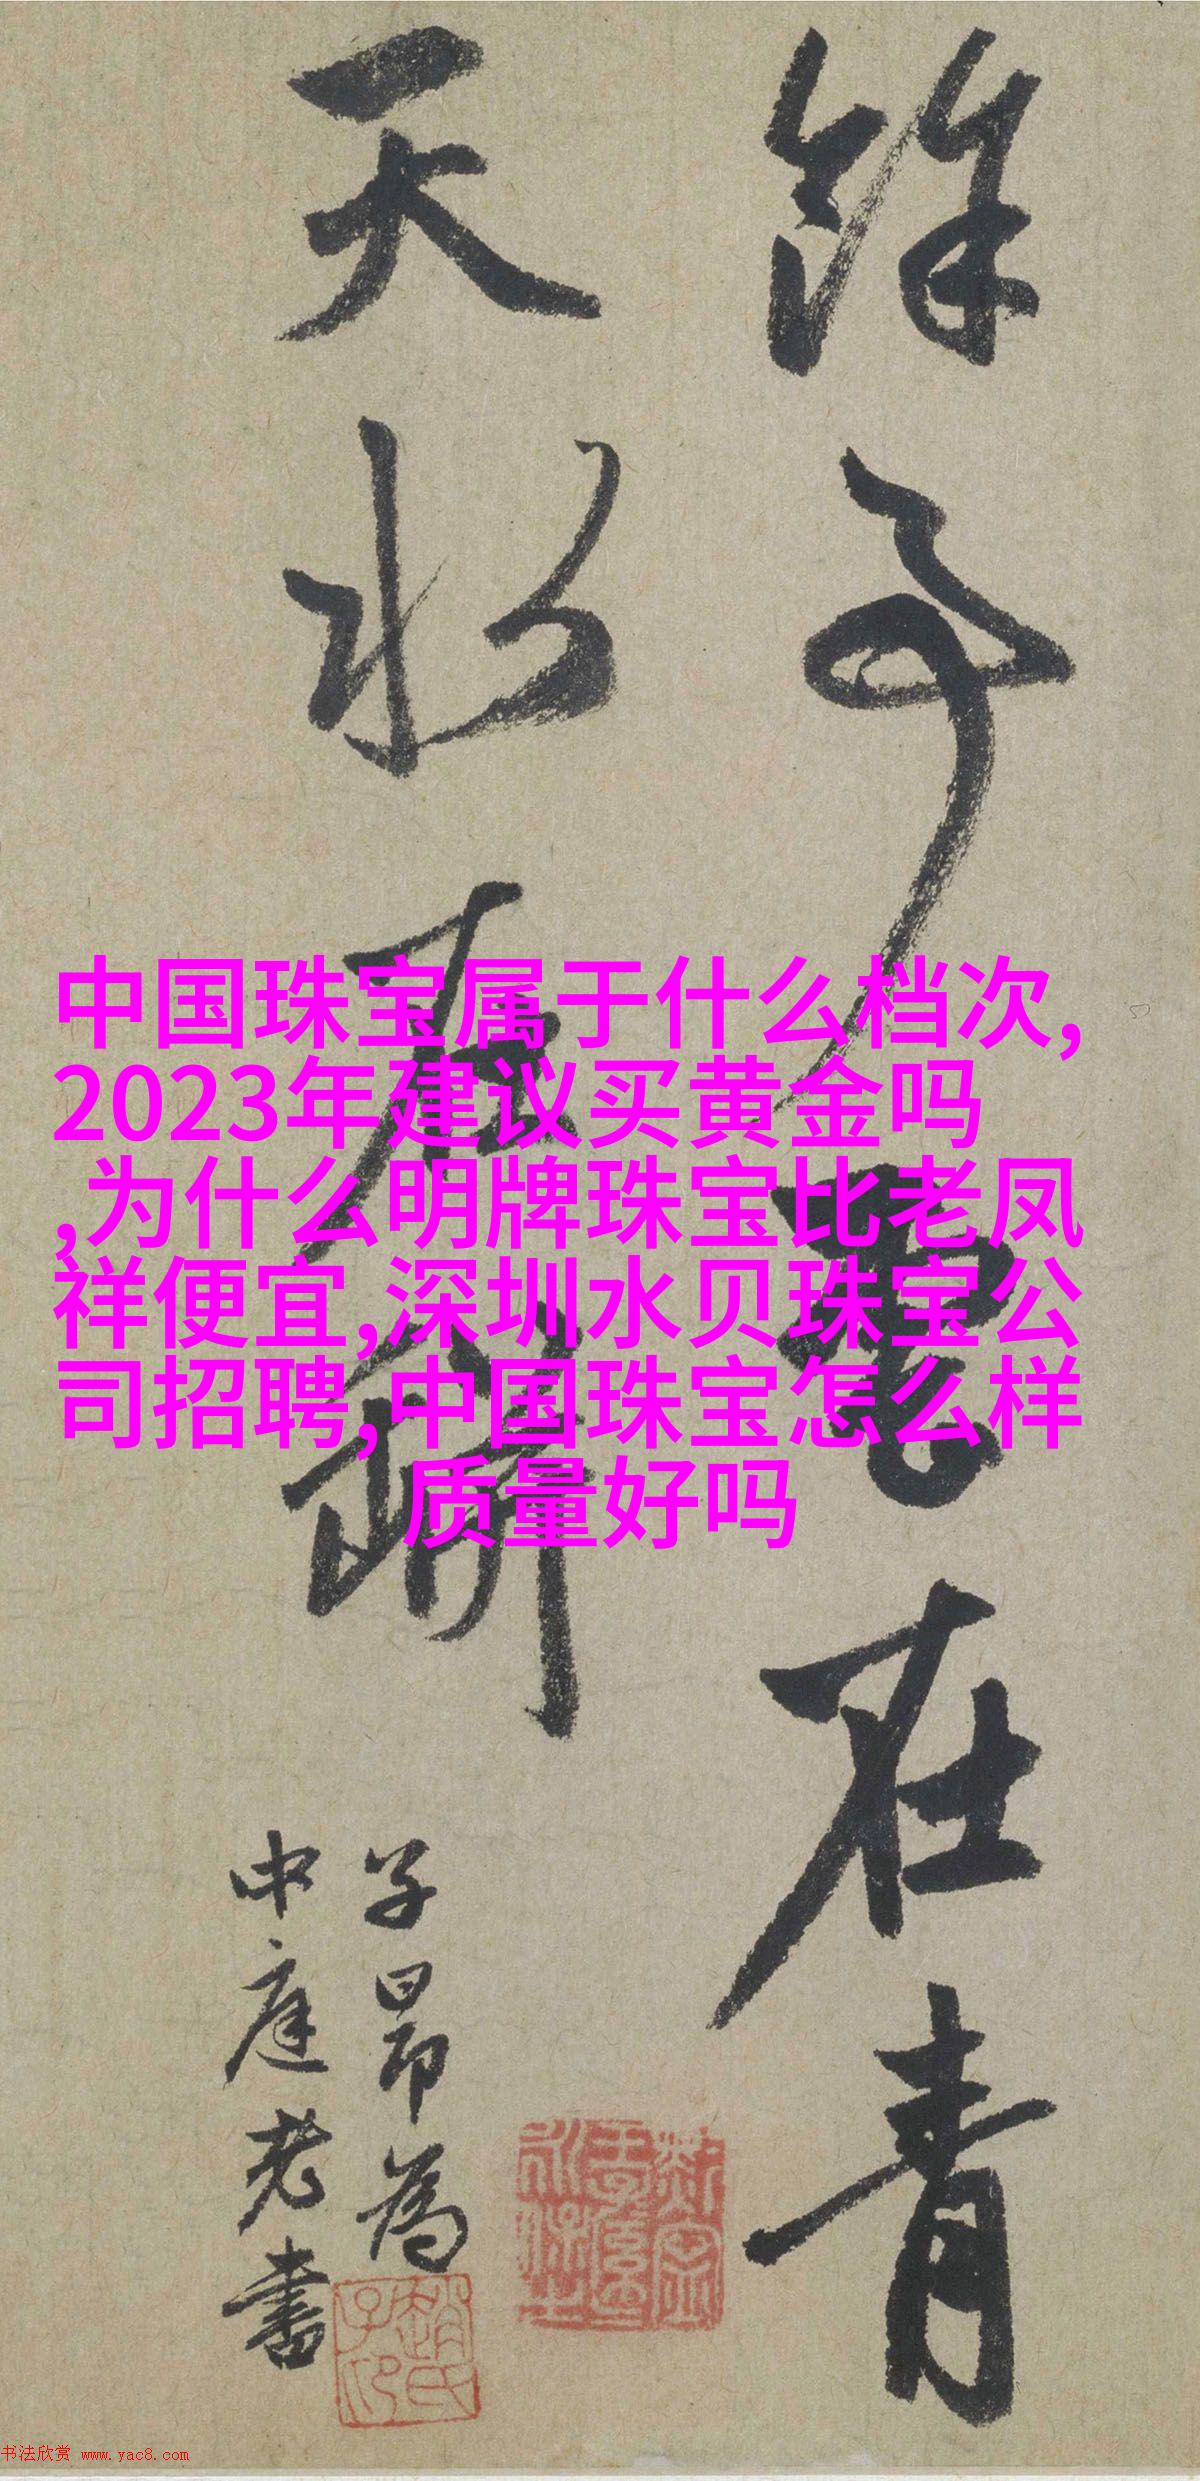 餘事雲在青
天水在缾
子昂為
中庭老書
趙氏子昂
中国珠宝属于什么档次,
2023年建议买黄金吗
,为什么明牌珠宝比老凤
祥便宜,深圳水贝珠宝公
司招聘,中国珠宝怎么样
质量好吗
书法欣赏 www.yac8.com